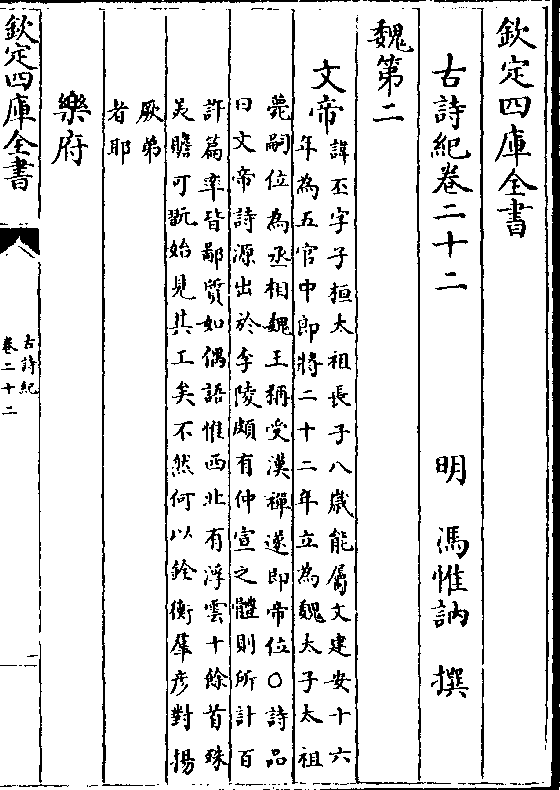 欽定四庫全書
古詩紀卷二十二
明 馮惟訥 撰
魏第二
文帝
諱丕字子桓太祖長子八歲能屬文建安十六
年為五官中郎將二十二年立為魏太子太祖
薨嗣位為丞相魏王猶受漢禪遂即帝位○詩品
曰文帝詩源出於李陵頗有仲宣之體則所計百
許篇率皆鄙質如偶語惟西北有浮雲十餘首殊
美贍可翫始見其工矣不然何以銓衡羣彦對揚
厥弟
者耶
樂府
欽定四庫全書
古詩紀
卷二十二
一